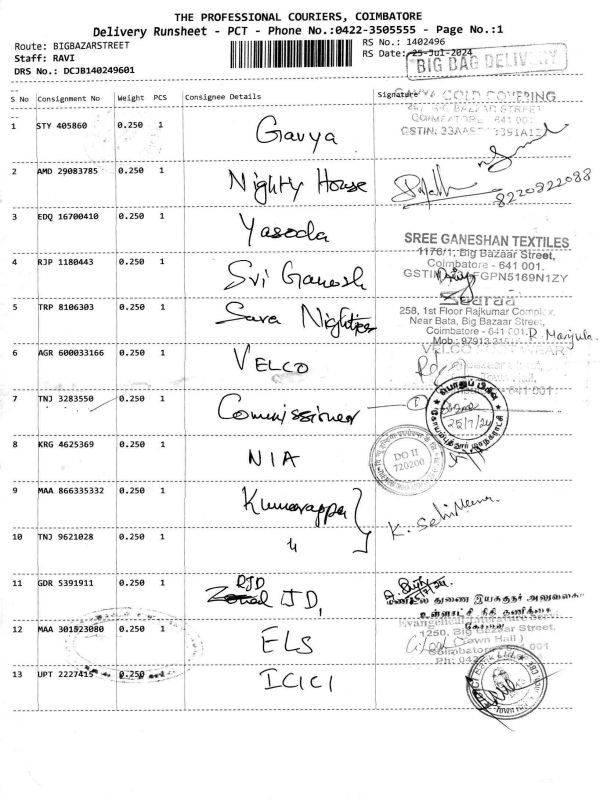 THE PROFESSIONAL COURIERS, COIMBATORE
Delivery Runsheet - PCT - Phone No.:0422-3505555 - Page No.:1
Route: BIGBAZARSTREET
RS No.: 1402496
Staff: RAVI
RS Date: 25-Jul-2024
BIG BAG DELIVERY
DRS No.: DCJB140249601
S No Consignment No Weight PCS Consignee Details Signature
GAVYA GOLD COVERING
BIG BAZAAR STREET
COIMBATORE 641 001
1 STY 405860 0.250 1 Gavya
2 AMD 29083785 0.250 1 Nighty House
8220822088
3 EDQ 16700410 0.250 1 Yasoda
SREE GANESHAN TEXTILES
1176/1, Big Bazaar Street,
4 RJP 1180443 0.250 1 Sri Ganesh
Coimbatore - 641 001.
Zaaraa
5 TRP 8106303 0.250 1 Sara Nighties
258, 1st Floor Rajkumar Complex,
Near Bata, Big Bazaar Street,
Coimbatore - 641 001.
R. Manjula
6 AGR 600033166 0.250 1 VELCO
VELCO
7 TNJ 3283550 0.250 1 Commissioner
1
25/7/24
8 KRG 4625369 0.250 1 NIA
DO II
720200
9 MAA 866335332 0.250 1 Kumarappa
10 TNJ 9621028 0.250 1 "
11 GDR 5391911 0.250 1 RJD
JD,
உள்ளாட்சி நிதி தணிக்கை
கோவை
12 MAA 301523080 0.250 1 ELS
1260, Big Bazaar Street,
(Town Hall)
Coimbatore - 641 001
13 UPT 2227415 0.250 1 ICICI